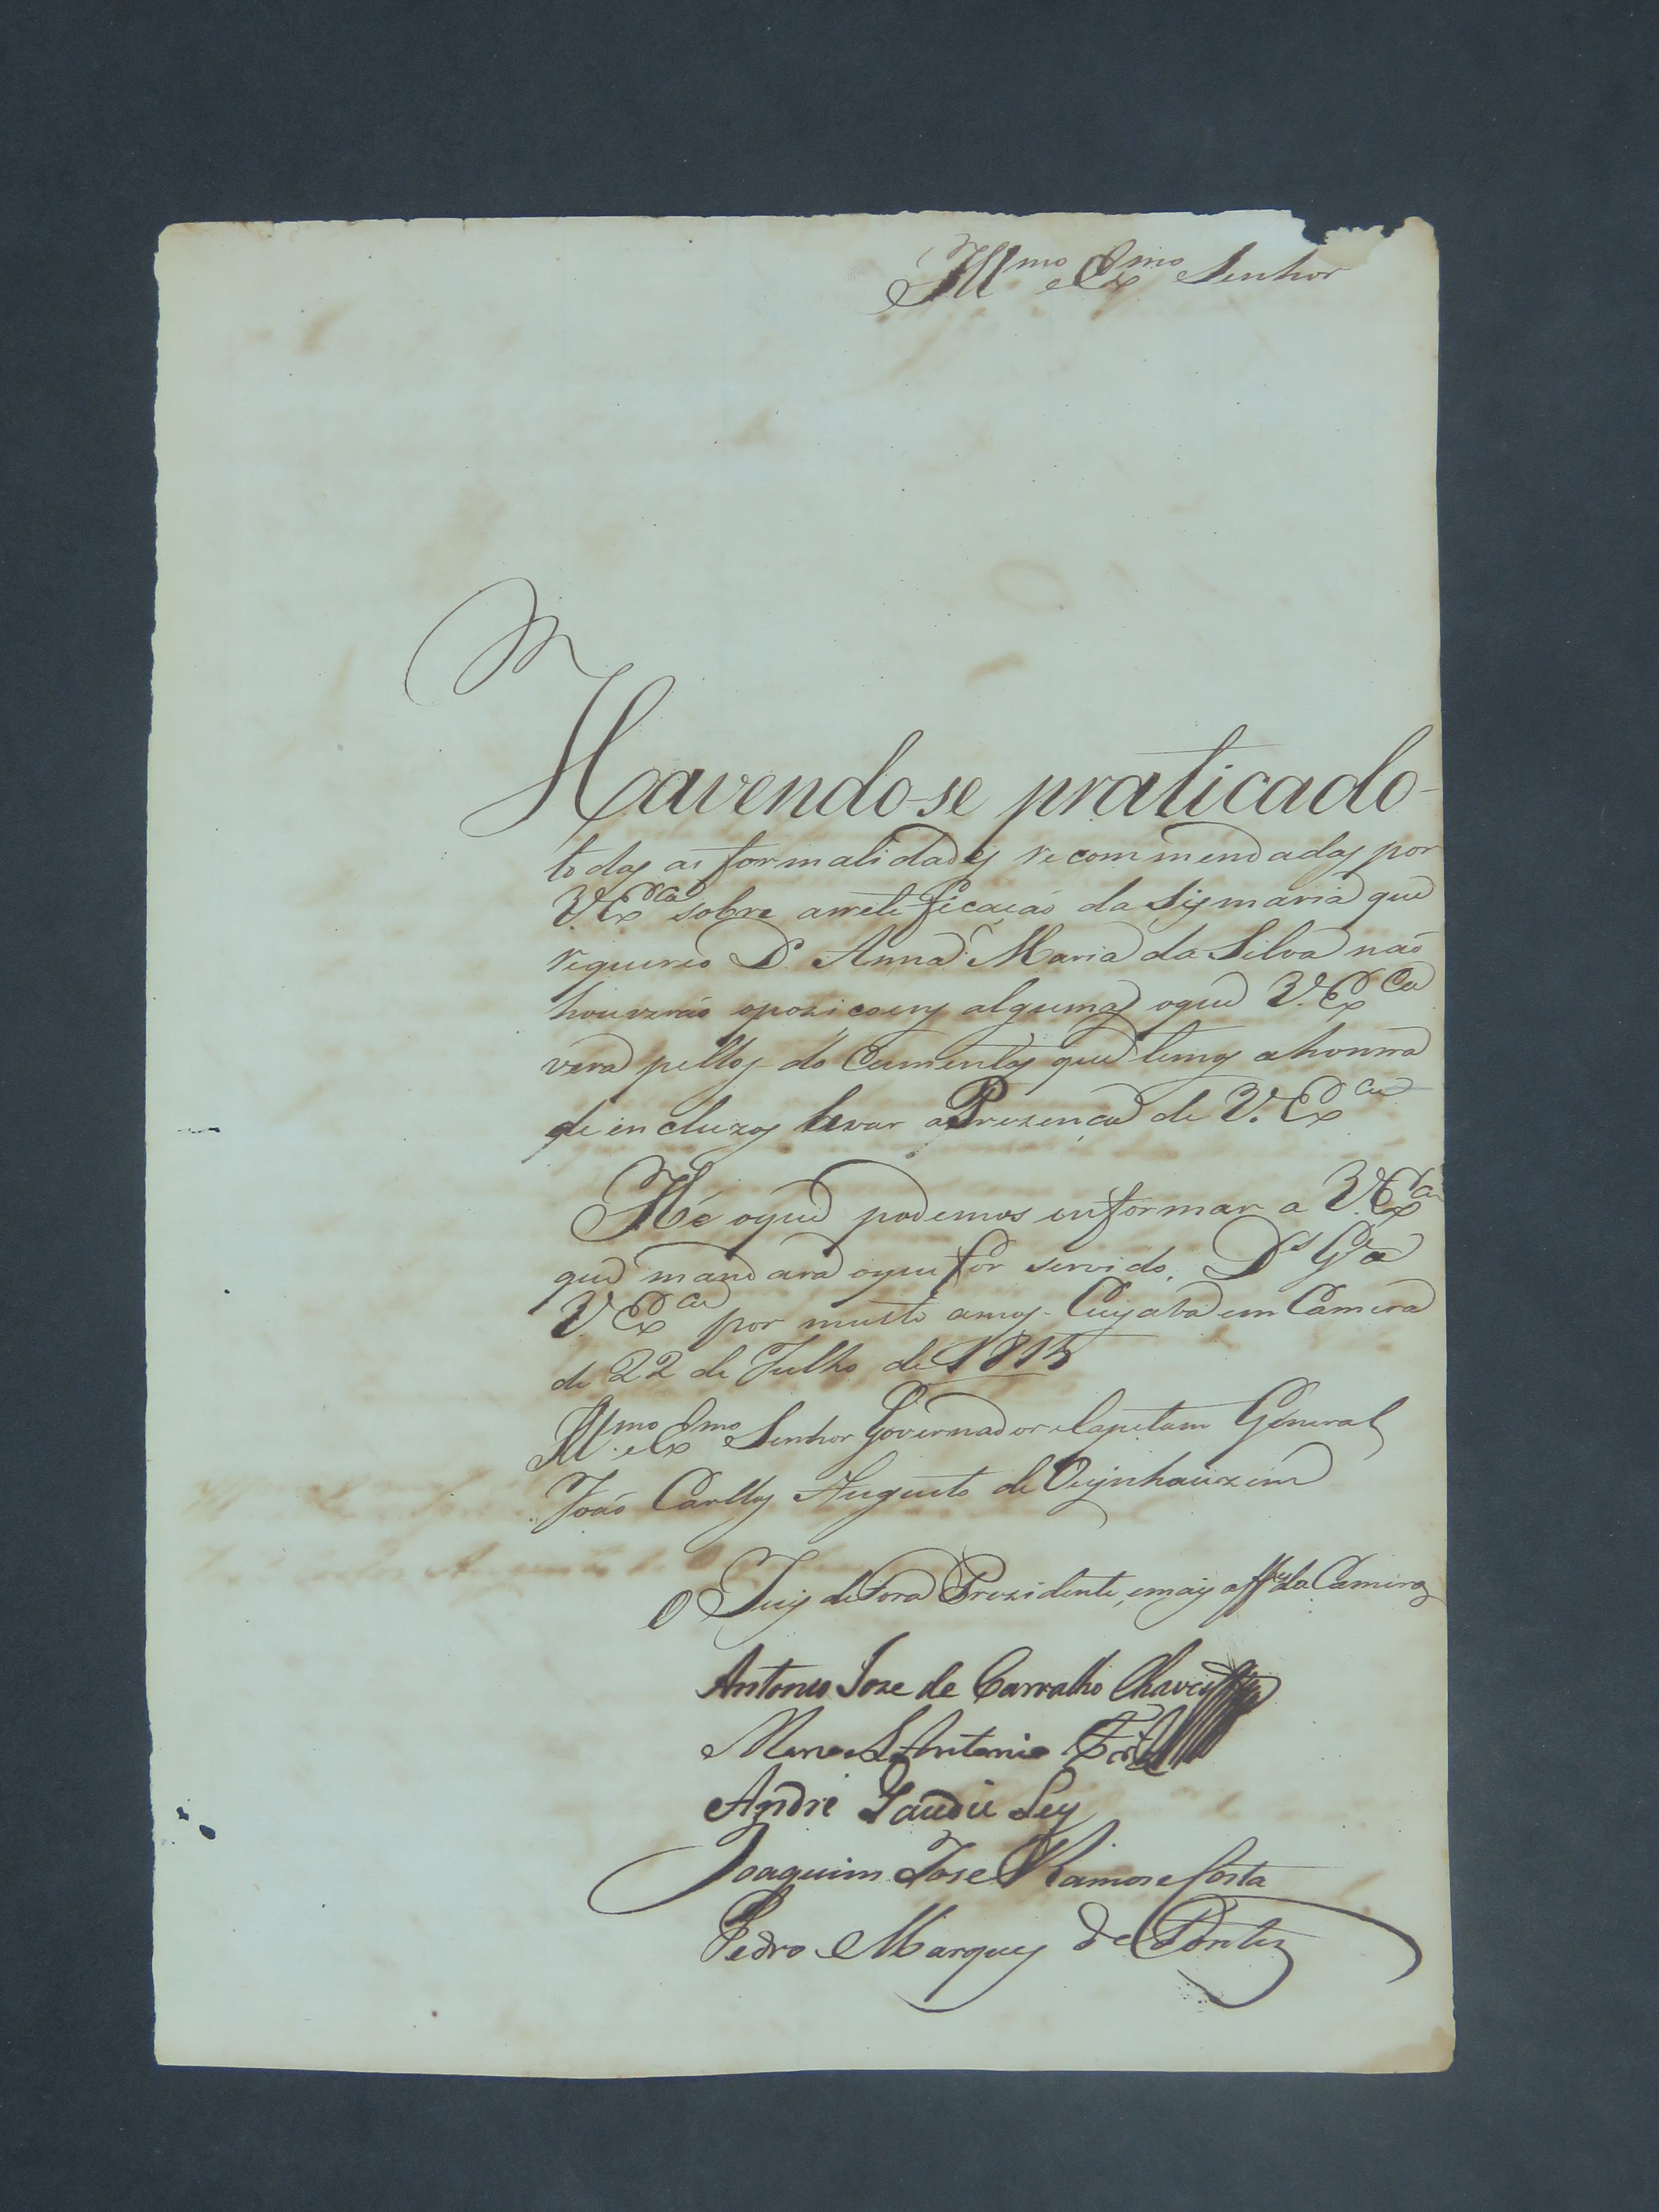 Ill.mo e Ex.mo Senhor
Havendo-se praticado
todas as formalidades recommendadas por
V. Ex.cia sobre arretificação da Sismaria que
requereo D. Anna Maria da Silva não
houverão opozicoens algumas oque V. Ex.ca
vera pellos documentos que temos a honrra
de incluzos levar a Prezença de V. Ex.ca
Hé oque podemos informar a V. Ex.ca
que mandara oque for servido. D.s G.e a
V. Ex.ca por muito annos. Cuyaba em Camera
de 22 de Julho de 1815
Ill.mo e Ex.mo Senhor Governador e Capitam General
João Carllos Augusto de Oeynhauzem
O Juiz de Fora Prezidente, e mais off.es da Camera
Antonio Joze de Carvalho Chaves
Manoel Antonio
André Gaudie Ley
Joaquim Jose Ramos e Costa
Pedro Marques de Pontes